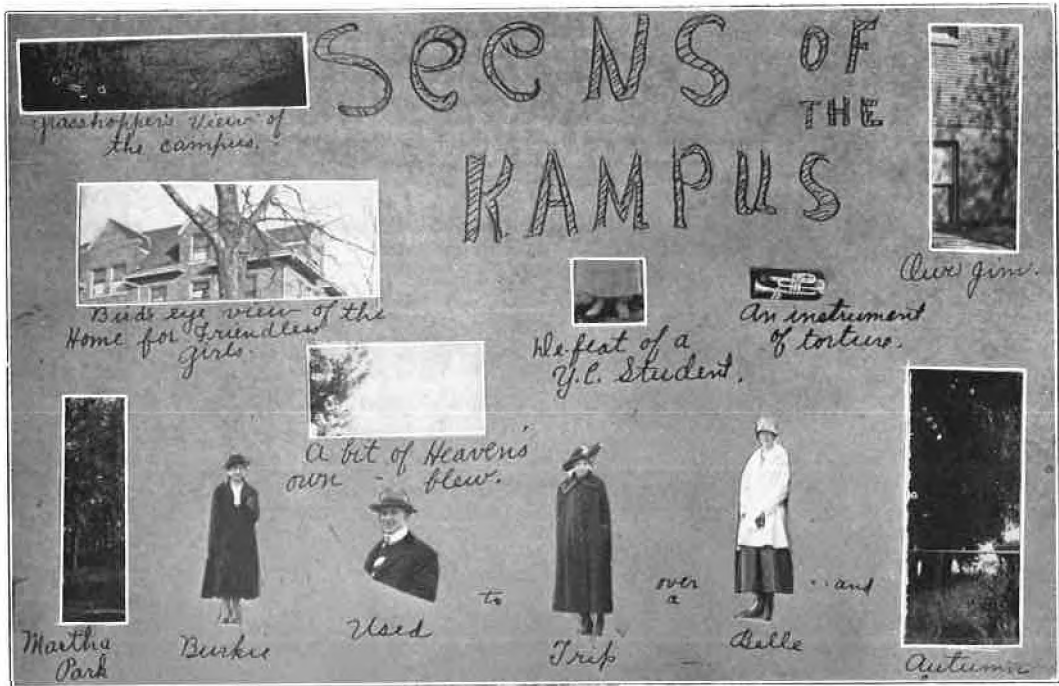 SeeNS OF
THE
KAMPUS
Grasshopper's View of
the campus.
Our gim.
Birds eye view of the
Home for Friendless
Girls.
De feat of a
Y.C. Student.
An instrument
of torture.
A bit of Heaven's
own blew.
Martha
Park
Burkie
Used
to
Trip
over
a
Belle
and
Autumn